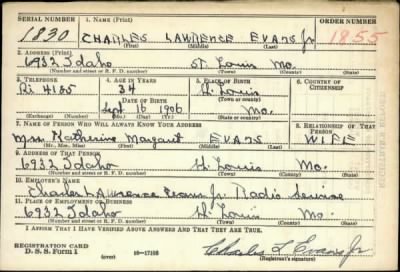 SERIAL NUMBER 1. NAME (Print) ORDER NUMBER
1830 CHARLES LAWRENCE EVANS Jr 1855
(First) (Middle) (Last)
2. ADDRESS (Print)
6932 Idaho St Louis Mo.
(Number and street or R. F. D. number) (Town) (County) (State)
3. TELEPHONE 4. AGE IN YEARS 5. PLACE OF BIRTH 6. COUNTRY OF CITIZENSHIP
Ri 4185 34 St Louis
(Town or county)
DATE OF BIRTH
Sept 16 1906 Mo.
(Exchange) (Number) (Mo.) (Day) (Yr.) (State or country)
7. NAME OF PERSON WHO WILL ALWAYS KNOW YOUR ADDRESS 8. RELATIONSHIP OF THAT PERSON
Mrs Katherine Margaret EVANS WIFE
(Mr., Mrs., Miss) (First) (Middle) (Last)
9. ADDRESS OF THAT PERSON
6932 Idaho St Louis Mo.
(Number and street or R. F. D. number) (Town) (County) (State)
10. EMPLOYER'S NAME
Charles Lawrence Evans Jr. Radio Service
11. PLACE OF EMPLOYMENT OR BUSINESS
6932 Idaho St Louis Mo.
(Number and street or R. F. D. number) (Town) (County) (State)
I AFFIRM THAT I HAVE VERIFIED ABOVE ANSWERS AND THAT THEY ARE TRUE.
REGISTRATION CARD
D. S. S. Form 1 (over) 16—17105 Charles L Evans Jr
(Registrant's signature)